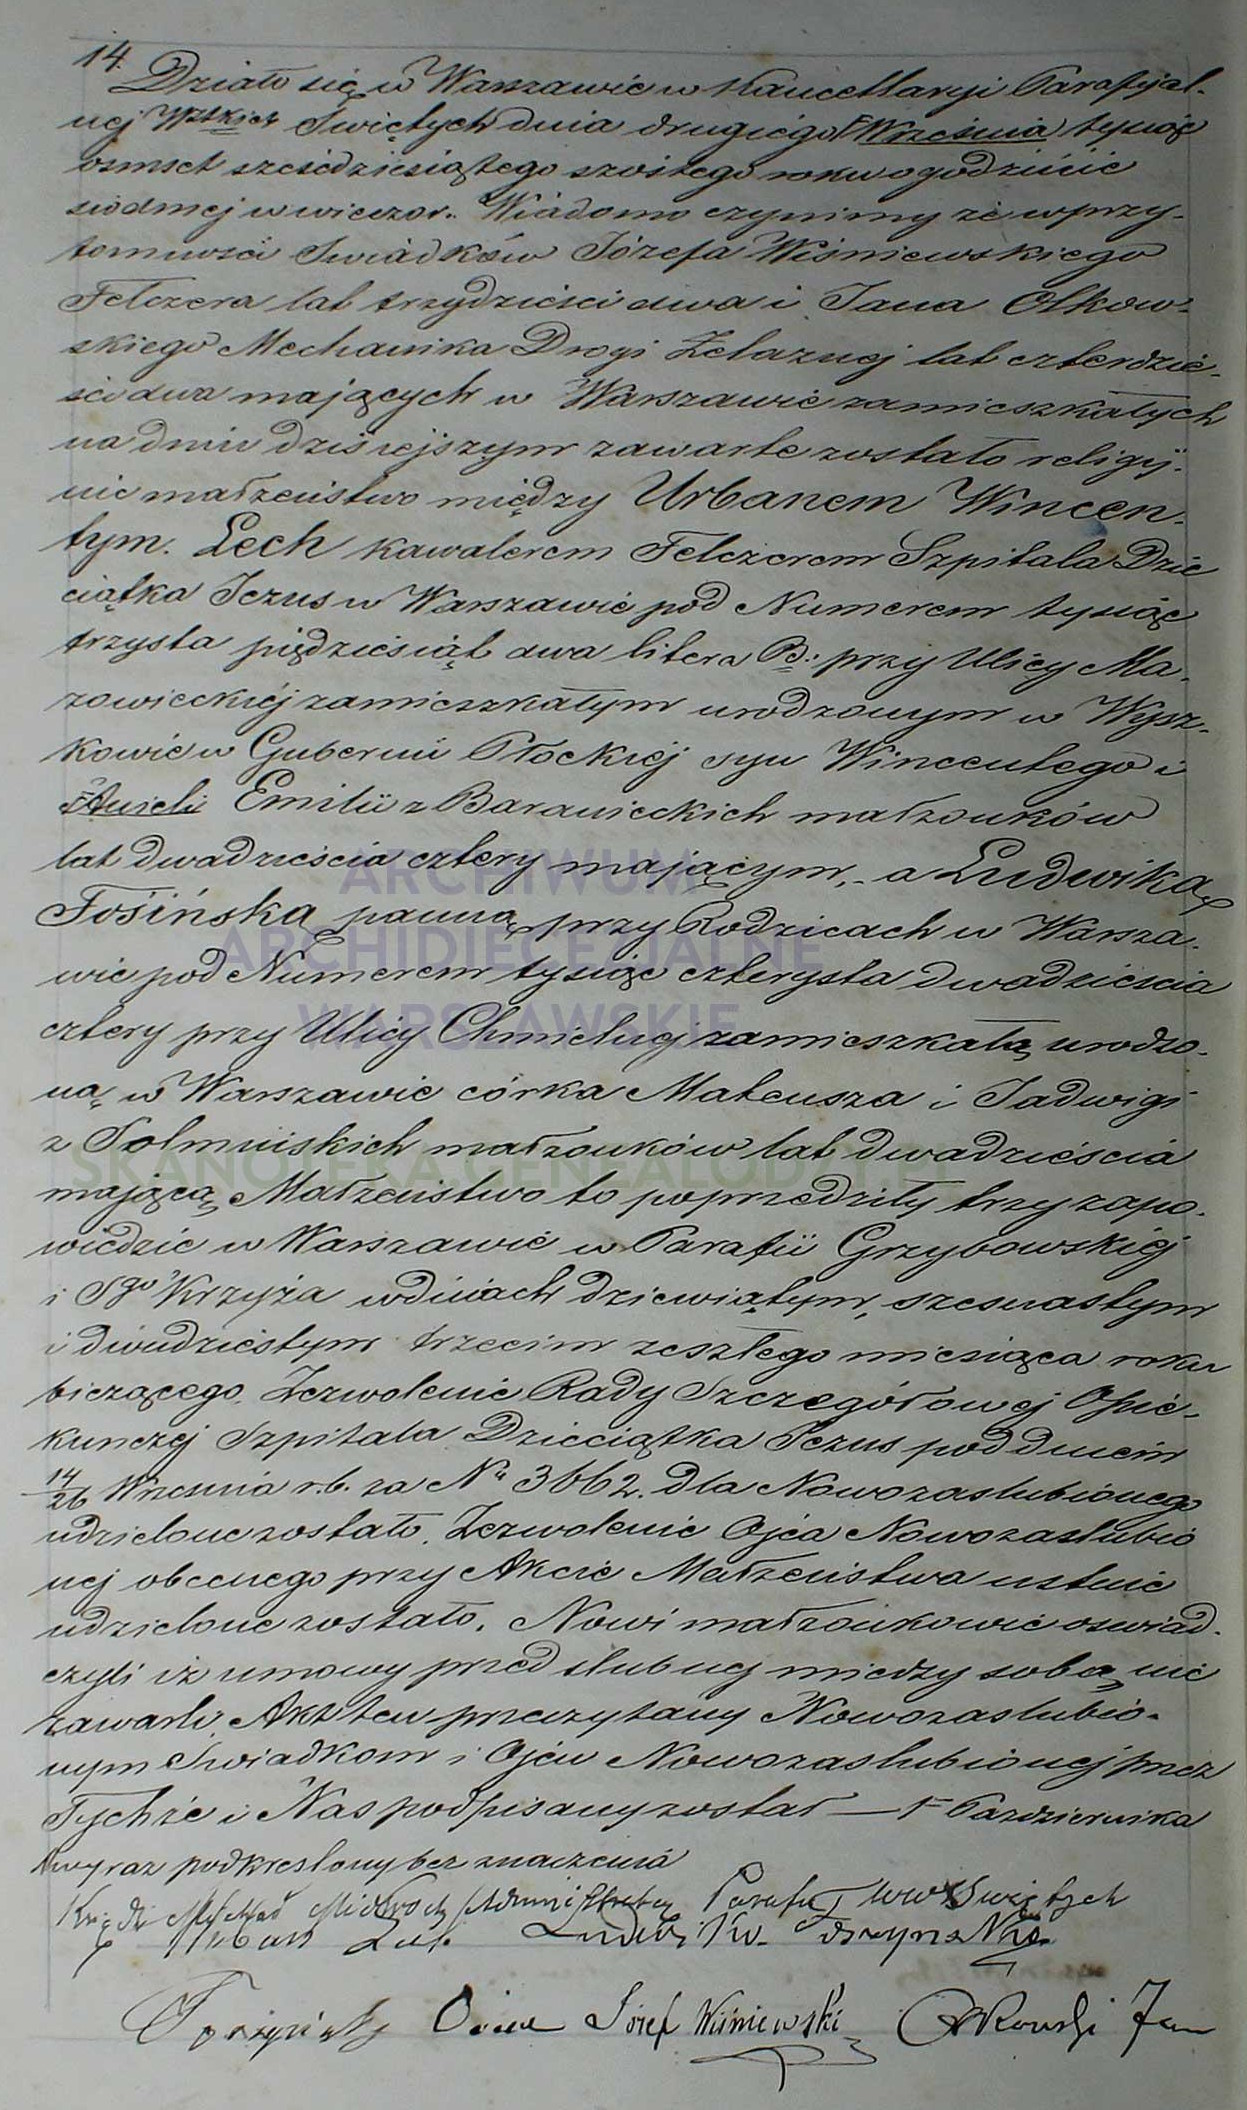 14.
Działo się w Warszawie w Kancellaryi Parafijal-
nej Wstkich Świętych dnia drugiego Września tysiąc
osmset sześćdziesiątego szóstego roku o godzinie
siódmej w wieczor. Wiadomo czynimy że w przy-
tomności Świadków Józefa Wiśniewskiego
Felczera lat trzydzieści dwa i Jana Olkow-
skiego Mechanika Drogi Żelaznej lat czterdzie-
ści dwa mających w Warszawie zamieszkałych
na dniu dzisiejszym zawarte zostało religij-
nie małżeństwo między Urbanem Wincen-
tym. Lech kawalerem Felczerem Szpitala Dzie
ciątka Jezus w Warszawie pod Numerem tysiąc
trzysta pięćdziesiąt dwa litera B. przy Ulicy Ma-
zowieckiéj zamieszkałym urodzonym w Wysz-
kowie w Gubernii Płockiéj syn Wincentego i
Anieli Emilii z Baranieckich małżonków
lat dwadzieścia cztery mającym,- a Ludwiką
Tosińską panną przy Rodzicach w Warsza-
wie pod Numerem tysiąc czterysta dwadzieścia
cztery przy Ulicy Chmielnej zamieszkałą urodzo-
ną w Warszawie córka Mateusza i Jadwigi
z małżonków lat dwadzieścia
mającą, Małżeństwo to poprzedziły trzy zapo-
wiedzie w Warszawie w Parafii Grzybowskiej
i Sgo Krzyża w dniach dziewiątym, szesnastym
i dwudziestym trzecim zeszłego miesiąca roku
bieżącego. Zezwolenie Rady Szczegółowej Opie-
kunczej Szpitala Dzieciątka Jezus pod dniem
14/26 Września r.b. za No 3662. dla Nowozaślubionego
udzielone zostało. Zezwolenie Ojca Nowozaślubio
nej obecnego przy Akcie Małżeństwa ustnie
udzielone zostało. Nowi małżonkowie oświad-
czyli iż umowy przed ślubnej między sobą nie
zawarli. Akt ten przeczytany Nowozaślubio-
nym Świadkom i Ojcu Nowozaślubionej przez
Tychże i Nas podpisany został — Października
wyraz podkreślony bez znaczenia
Ksiądz Michał Administrator Parafii WW Świętych
Urban Lech Ludwika
Ojciec Józef Wiśniewski Olkowski Jan
ARCHIWUM
ARCHIDIECEZJALNE
WARSZAWSKIE